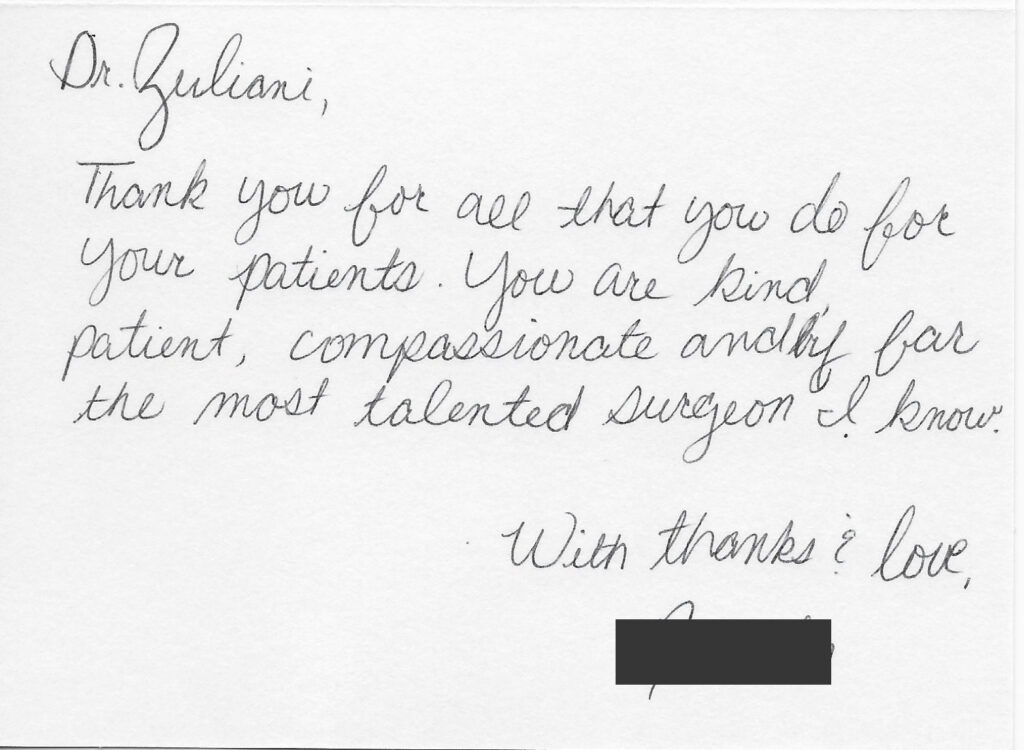 Dr. Zuliani,
Thank you for all that you do for
your patients. You are kind,
patient, compassionate and by far
the most talented surgeon I know.
With thanks & love,